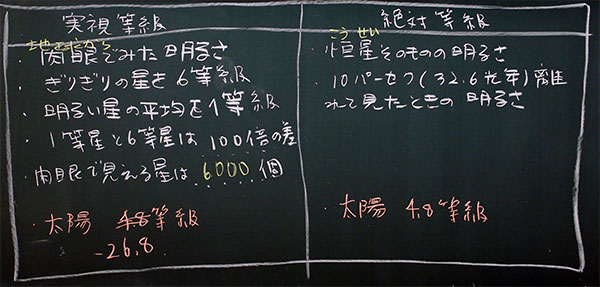 実視等級
地球から
・肉眼でみた明るさ
・ぎりぎりの星を6等級
・明るい星の平均を1等級
・1等星と6等星は100倍の差
・肉眼で見える星は6000個
・太陽 4.8等級
-26.8
絶対等級
こうせい
・恒星そのものの明るさ
・10パーセク(32.6光年)離
れて見たときの明るさ
・太陽 4.8等級